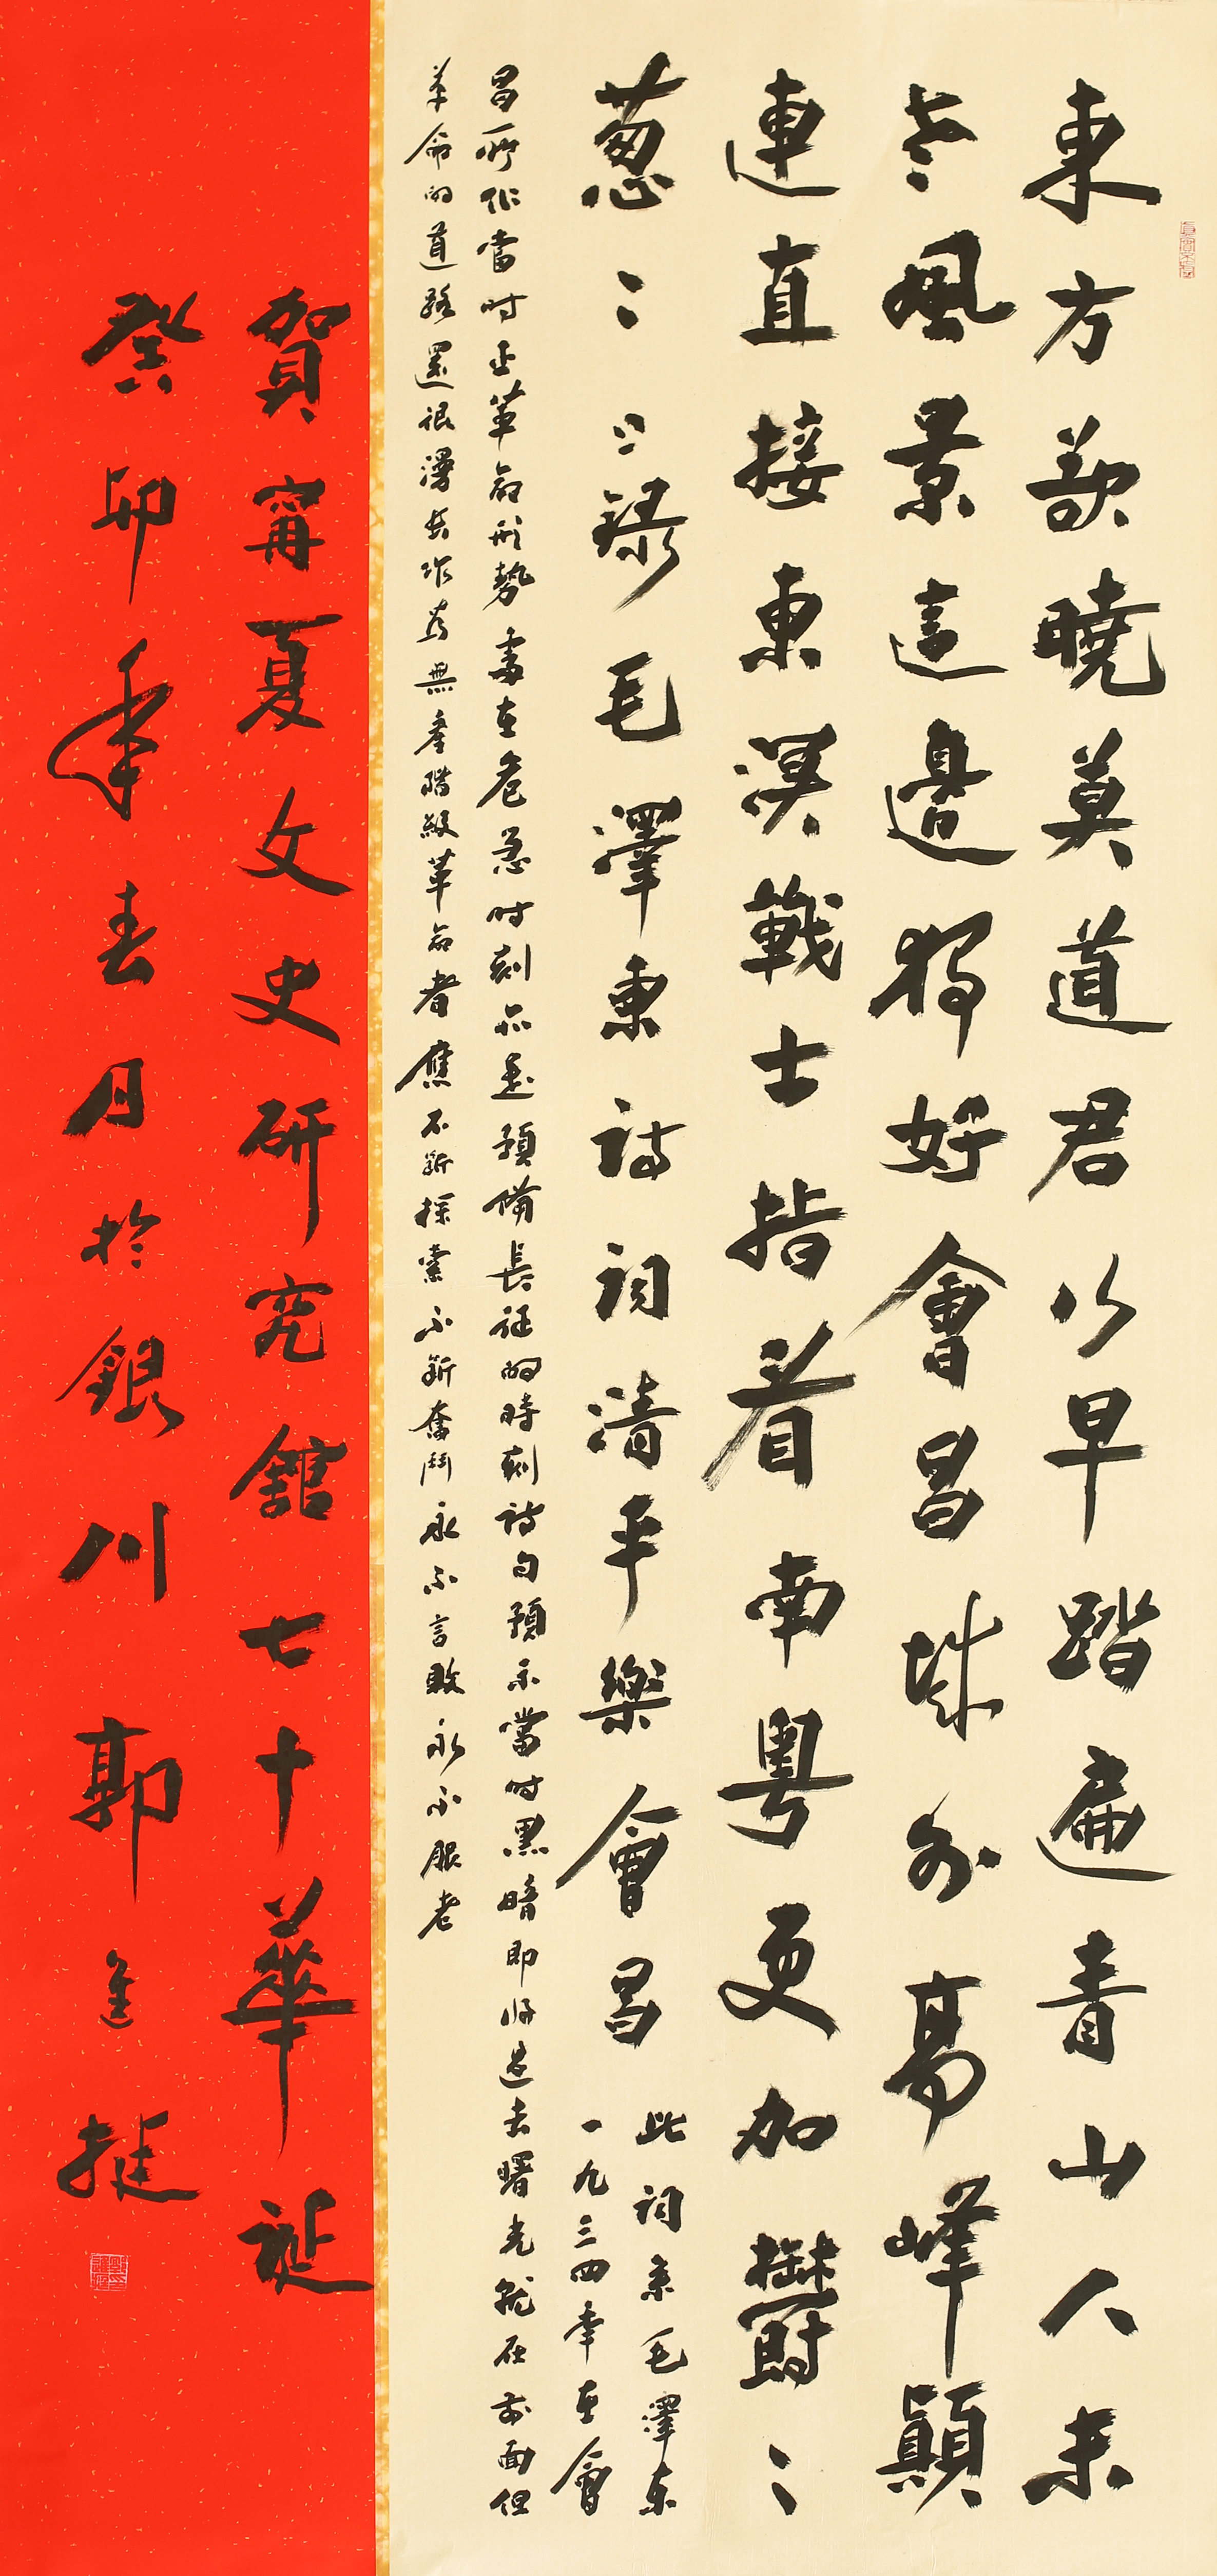 東方欲曉莫道君行早踏遍青山人未
老風景這邊獨好會昌城外高峰顛
連直接東溟戰士指看南粵更加鬱〻
葱〻〻錄毛澤東詩詞清平樂會昌
此詞系毛澤東
一九三四年在會
昌所作當时正革命形勢處在危急时刻亦是預備長征的時刻詩句預示當时黑暗即将过去曙光就在前面但
革命的道路還很漫長作为無產階級革命者應不斷探索不斷奮鬥永不言敗永不服老
賀甯夏文史研究館七十華誕
癸卯年春月於銀川郭進挺